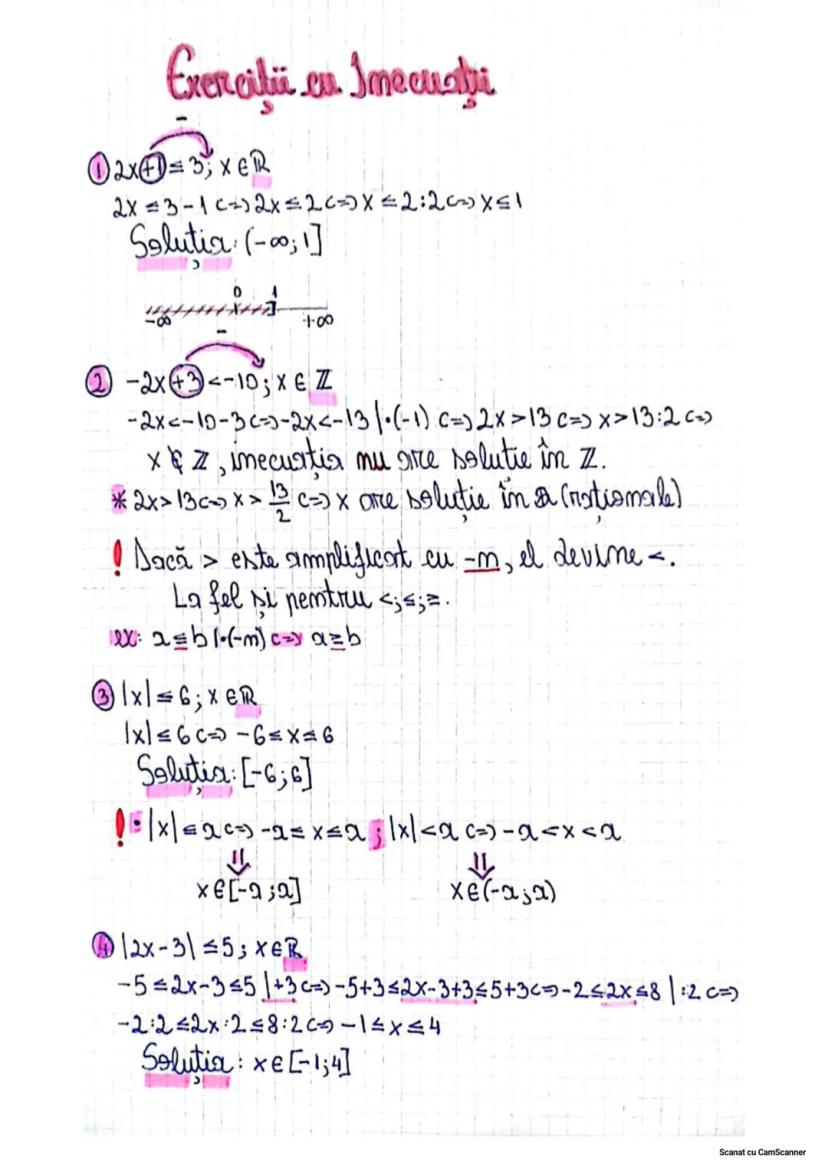 Exerciții cu Inecuații
-
① 2x+1 ≤ 3; x ∈ ℝ
2x ≤ 3-1 <=> 2x ≤ 2 <=> x ≤ 2:2 <=> x ≤ 1
Soluția: (-∞; 1]
0 1
-∞ +∞
-
② -2x+3 < -10; x ∈ ℤ
-2x < -10-3 <=> -2x < -13 |·(-1) <=> 2x > 13 <=> x > 13:2 <=>
x ∉ ℤ, inecuația nu are solutie în ℤ.
* 2x > 13 <=> x > 13/2 <=> x are soluție în ℚ (raționale)
! Dacă > este amplificat cu -n, el devine <.
La fel și pentru <; ≤; ≥.
ex: a ≤ b |·(-n) <=> a ≥ b
③ |x| ≤ 6; x ∈ ℝ
|x| ≤ 6 <=> -6 ≤ x ≤ 6
Soluția: [-6; 6]
! • |x| ≤ a <=> -a ≤ x ≤ a ; |x| < a <=> -a < x < a
⇓ ⇓
x ∈ [-a; a] x ∈ (-a; a)
④ |2x-3| ≤ 5; x ∈ ℝ
-5 ≤ 2x-3 ≤ 5 |+3 <=> -5+3 ≤ 2x-3+3 ≤ 5+3 <=> -2 ≤ 2x ≤ 8 |:2 <=>
-2:2 ≤ 2x:2 ≤ 8:2 <=> -1 ≤ x ≤ 4
Soluția: x ∈ [-1; 4]
Scanat cu CamScanner